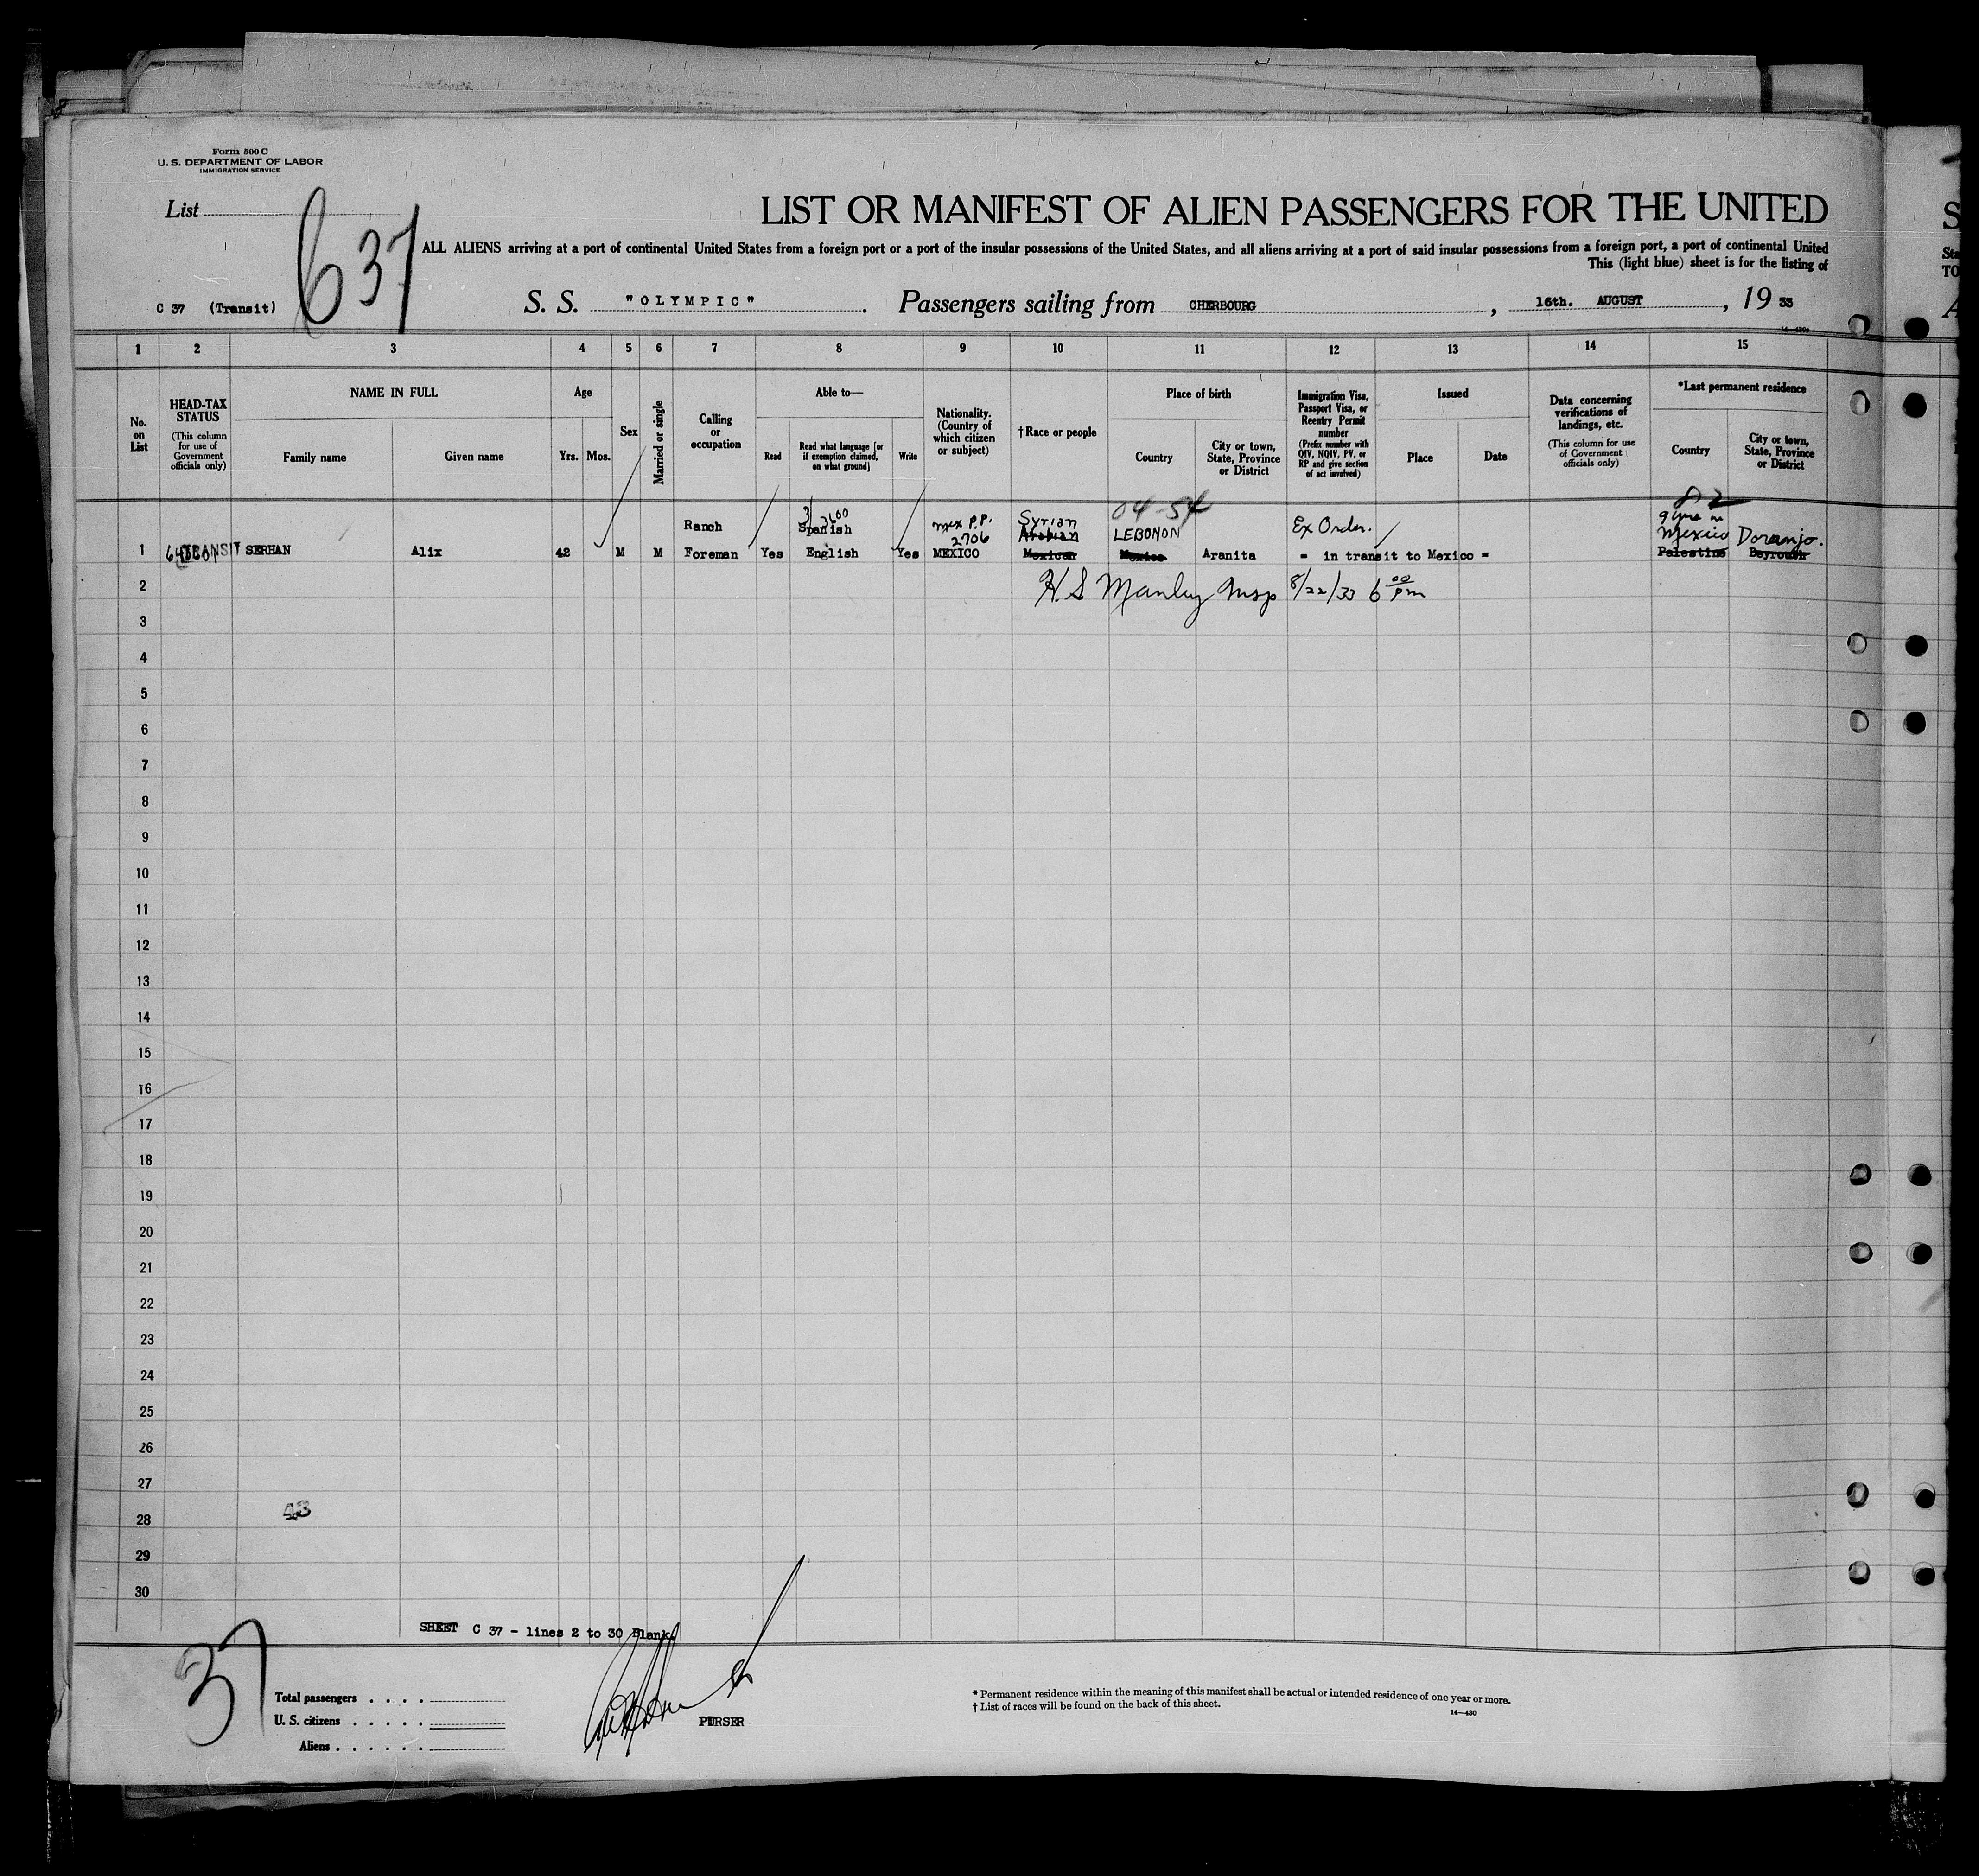 Form 500 C
U. S. DEPARTMENT OF LABOR
IMMIGRATION SERVICE
List
637
LIST OR MANIFEST OF ALIEN PASSENGERS FOR THE UNITED
ALL ALIENS arriving at a port of continental United States from a foreign port or a port of the insular possessions of the United States, and all aliens arriving at a port of said insular possessions from a foreign port, a port of continental United
This (light blue) sheet is for the listing of
C 37 (Transit)
S. S. "OLYMPIC". Passengers sailing from CHERBOURG, 16th. AUGUST, 19 33
1 2 3 4 5 6 7 8 9 10 11 12 13 14 15
No. on List
HEAD-TAX STATUS
(This column for use of Government officials only)
NAME IN FULL
Family name
Given name
Age
Yrs. Mos.
Sex
Married or single
Calling or occupation
Able to—
Read
Read what language [or if exemption claimed, on what ground]
Write
Nationality. (Country of which citizen or subject)
†Race or people
Place of birth
Country
City or town, State, Province or District
Immigration Visa, Passport Visa, or Reentry Permit number
(Prefix number with QIV, NQIV, PV, or RP and give section of act involved)
Issued
Place
Date
Data concerning verifications of landings, etc.
(This column for use of Government officials only)
*Last permanent residence
Country
City or town, State, Province or District
04-54
82
Ranch Spanish Mex P.P. Syrian LEBONON Ex Order. 9 yrs in
3/3600 2706 Arabian Mexico Doranjo.
1 TRANSIT SERHAN Alix 42 M M Foreman Yes English Yes MEXICO Mexican Mexico Aranita = in transit to Mexico = Palestine Beyrouth
2 H S Manley Insp 8/22/33 6 00 pm
3
4
5
6
7
8
9
10
11
12
13
14
15
16
17
18
19
20
21
22
23
24
25
26
27
43
28
29
30
SHEET C 37 - lines 2 to 30 Blank.
37
Total passengers
U. S. citizens
Aliens
PURSER
* Permanent residence within the meaning of this manifest shall be actual or intended residence of one year or more.
† List of races will be found on the back of this sheet.
14—430